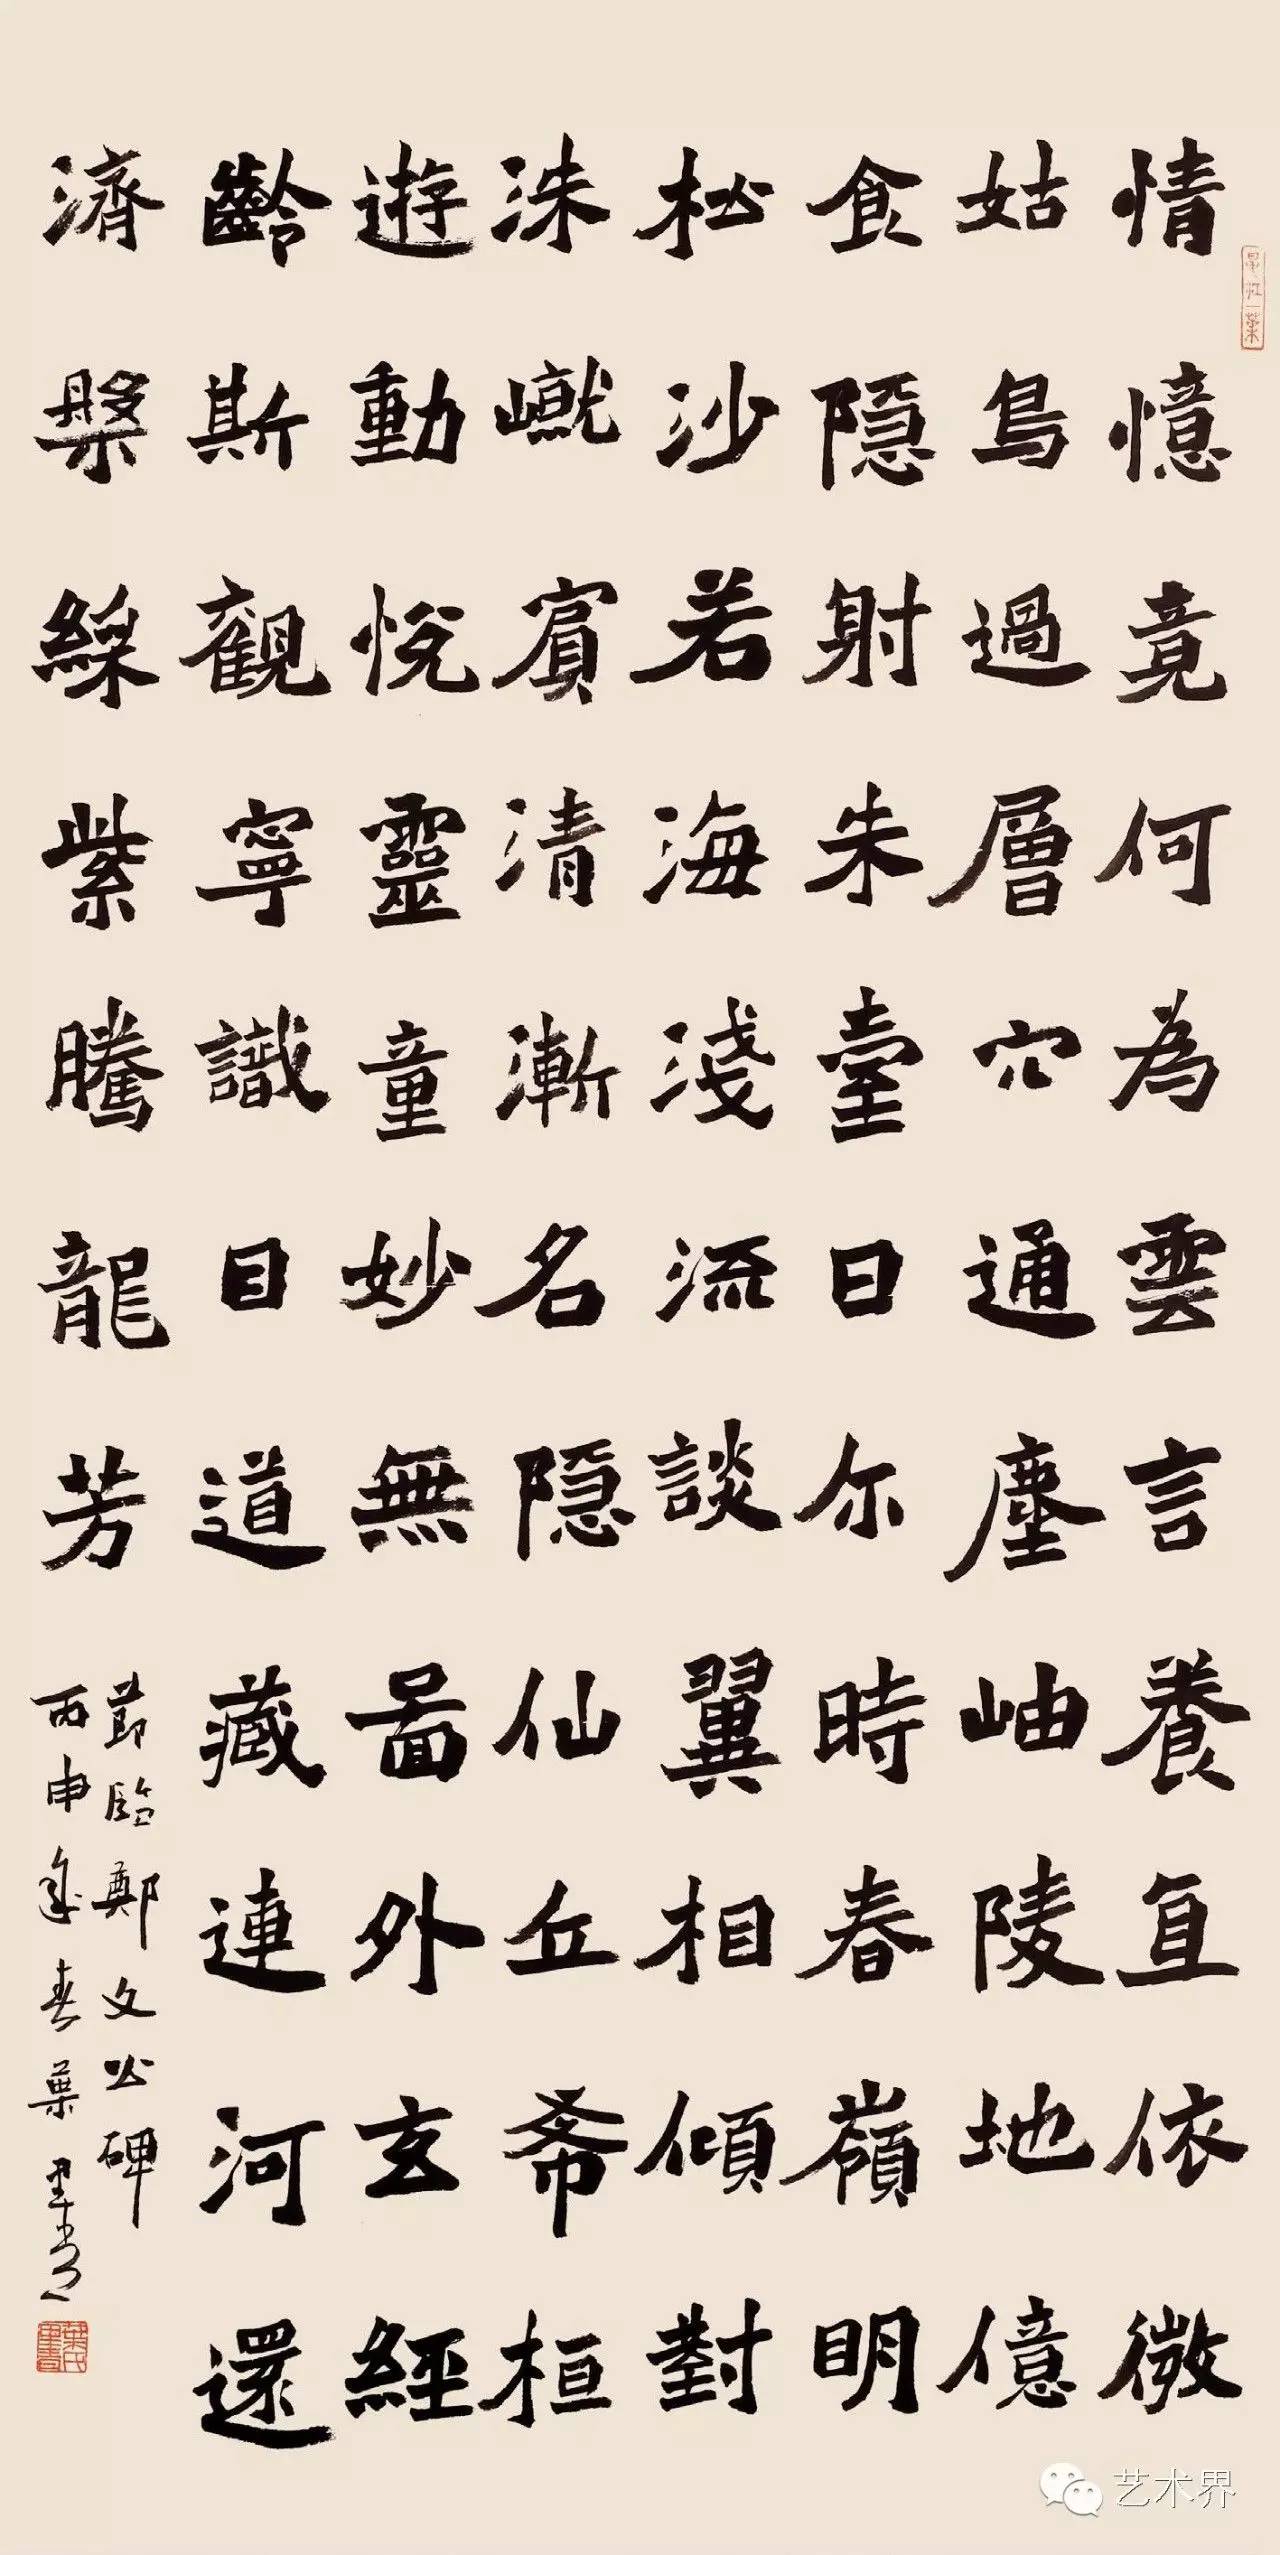 情憶竟何為雲言養直依微
姑鳥過層穴通塵岫陵地億
食隱射朱臺日尔時春嶺明
松沙若海淺流談翼相傾對
洙巘賓清漸名隱仙丘斋桓
遊動悦靈童妙無啚外玄經
齡斯觀寧識目道藏連河還
濟槃綵紫騰龍芳
節臨鄭文公碑
丙申年春葉
艺术界